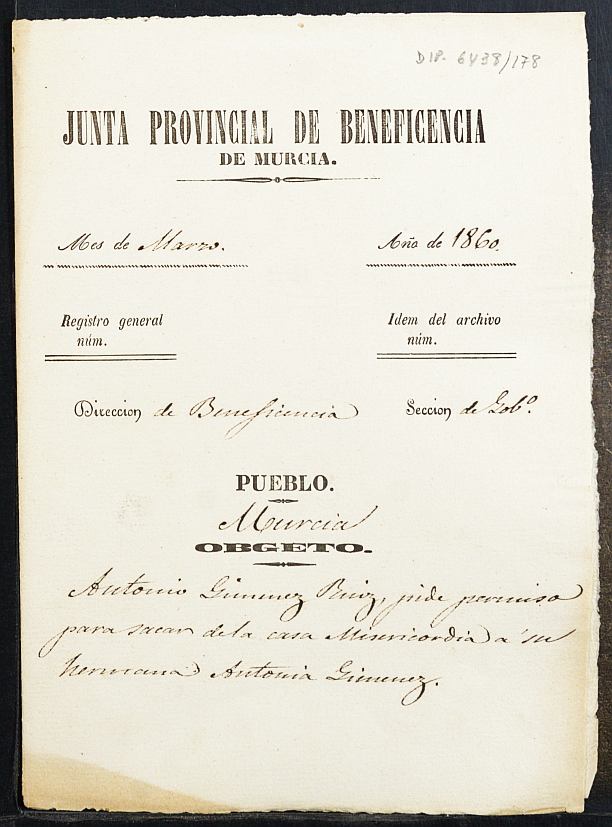 DIP. 6438/178
JUNTA PROVINCIAL DE BENEFICENCIA
DE MURCIA.
Mes de Marzo. Año de 1860.
Registro general Idem del archivo
núm. núm.
Direccion de Beneficencia Seccion de Gobº.
PUEBLO.
Murcia
OBGETO.
Antonio Gimenez Ruiz, pide permiso
para sacar de la casa Misericordia á su
hermana Antonia Gimenez.